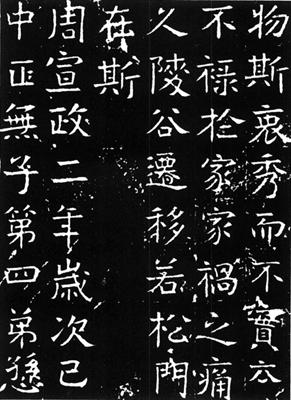 物斯衷秀而不實
不祿扵家家禍之痛
久陵谷遷移若松門
在斯
周宣政二年歲次己
中正無子第四弟愻